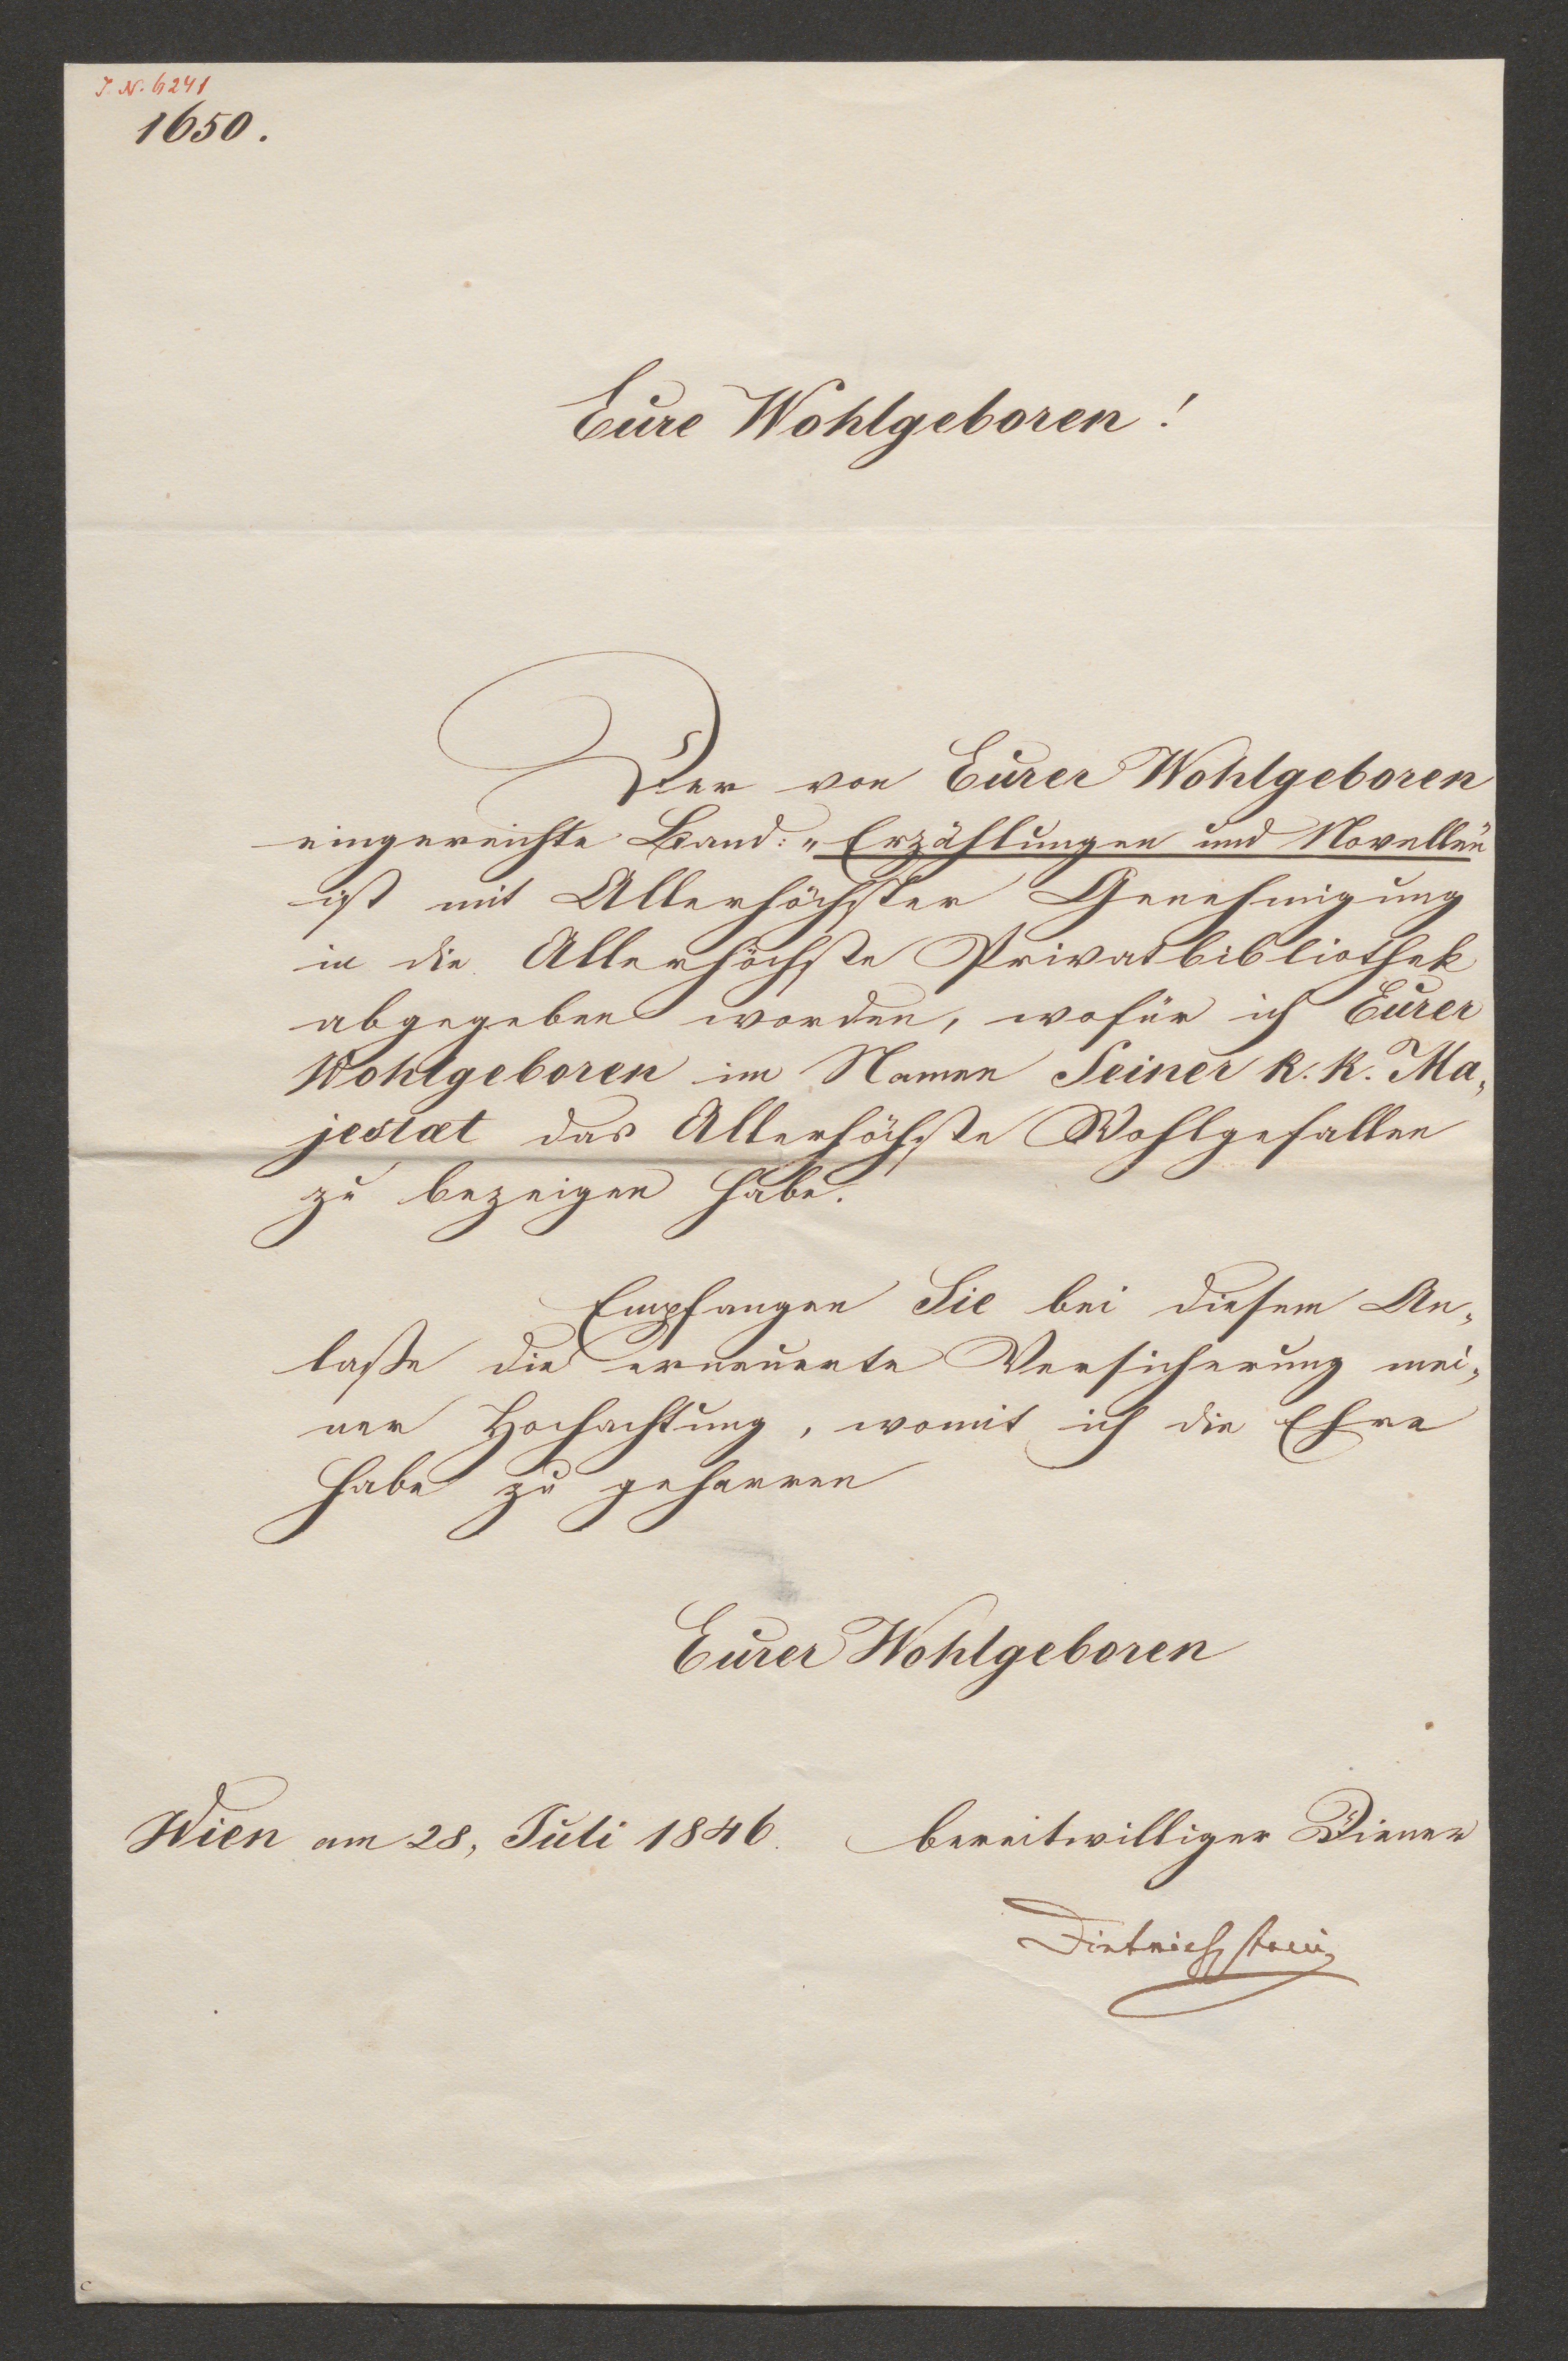 J. N. 6241
1650.
Eure Wohlgeboren!
Der von Eurer Wohlgeboren
eingereichte Band: „Erzählungen und Novellen"
ist mit Allerhöchster Genehmigung
in die Allerhöchste Privatbibliothek
abgegeben worden, wofür ich Eurer
Wohlgeboren im Namen Seiner k. k. Ma„
jestæt das Allerhöchste Wohlgefallen
zu bezeigen habe.
Empfangen Sie bei diesem An„
laße die erneuerte Versicherung mei„
ner Hochachtung, womit ich die Ehre
habe zu geharren
Eurer Wohlgeboren
Wien am 28, Juli 1846.
bereitwilliger Diener
Dietrichstein